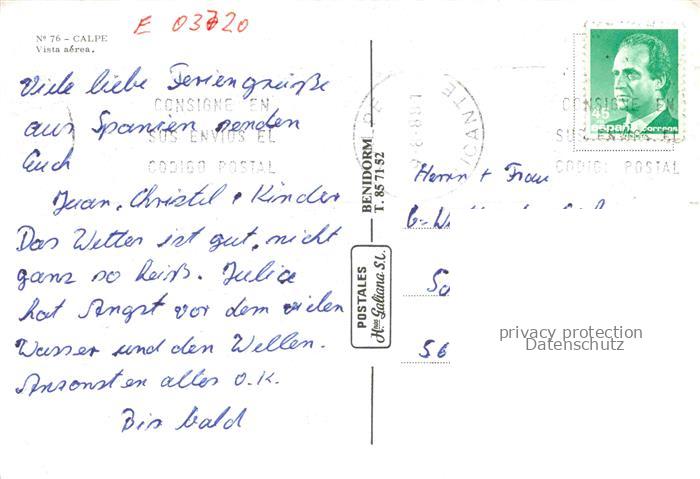 E 03720
Nº 76 - CALPE
Vista aérea.
Viele liebe Feriengrüße
aus Spanien senden
Euch
Juan, Christel + Kinder
Das Wetter ist gut, nicht
ganz so heiß. Julia
hat Angst vor dem vielen
Wasser und den Wellen.
Ansonsten alles o.k.
Bis bald
CONSIGNE EN
SUS ENVIOS EL
CODIGO POSTAL
BENIDORM
T. 85 71 52
POSTALES
Hnos Galiana S.L.
ICANTE
45
españa correos
CONSIGNE EN
SUS ENVIOS EL
CODIGO POSTAL
Herrn + Frau
50
56
privacy protection
Datenschutz